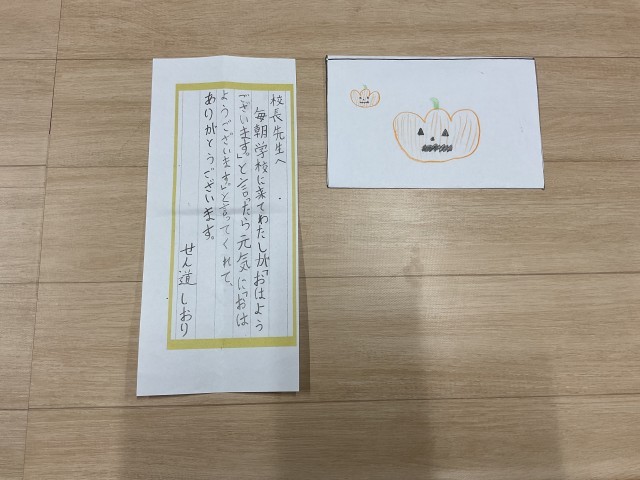 校長先生へ
毎朝学校に来てわたしが「おはよう
ございます。」と言ったら元気に「おは
ようございます。」と言ってくれて、
ありがとうございます。
せん道 しおり